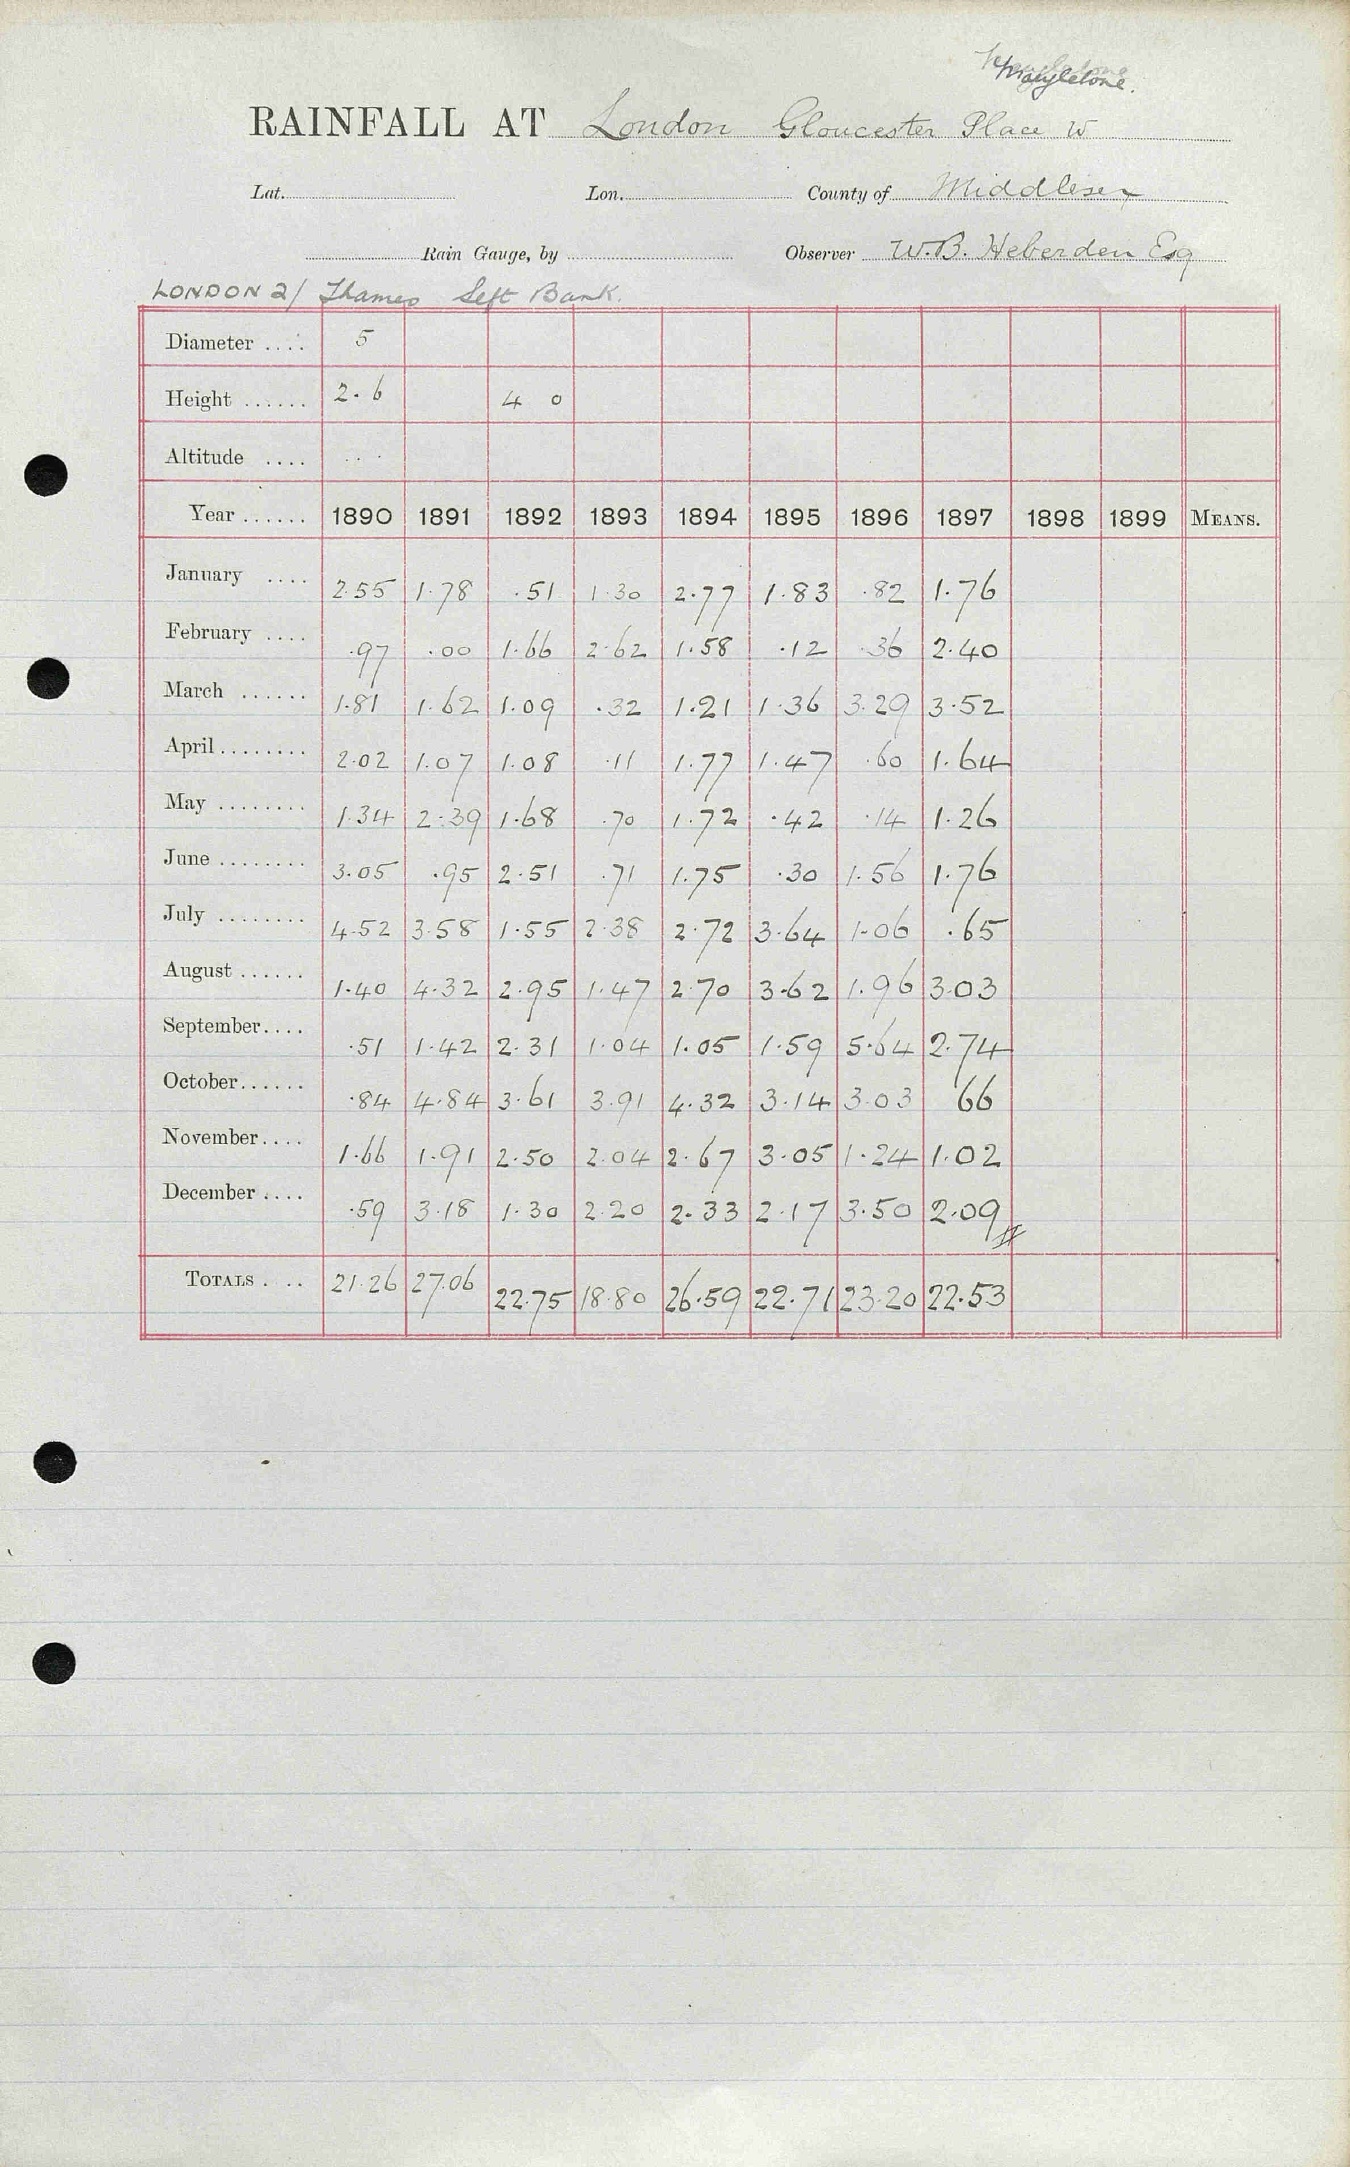 Marylebone.
RAINFALL AT London Gloucester Place W
Lat. Lon. County of Middlesex
Rain Gauge, by Observer W.B. Heberden Esq
LONDON 2/ Thames Left Bank.
Diameter .... 5
Height ...... 2.6 4 0
Altitude .... ...
Year ...... 1890 1891 1892 1893 1894 1895 1896 1897 1898 1899 MEANS.
January .... 2.55 1.78 .51 1.30 2.77 1.83 .82 1.76
February .... .97 .00 1.66 2.62 1.58 .12 .36 2.40
March ...... 1.81 1.62 1.09 .32 1.21 1.36 3.29 3.52
April ........ 2.02 1.07 1.08 .11 1.77 1.47 .60 1.64
May ........ 1.34 2.39 1.68 .70 1.72 .42 .14 1.26
June ........ 3.05 .95 2.51 .71 1.75 .30 1.56 1.76
July ........ 4.52 3.58 1.55 2.38 2.72 3.64 1.06 .65
August ...... 1.40 4.32 2.95 1.47 2.70 3.62 1.96 3.03
September.... .51 1.42 2.31 1.04 1.05 1.59 5.64 2.74
October...... .84 4.84 3.61 3.91 4.32 3.14 3.03 66
November.... 1.66 1.91 2.50 2.04 2.67 3.05 1.24 1.02
December .... .59 3.18 1.30 2.20 2.33 2.17 3.50 2.09
TOTALS .... 21.26 27.06 22.75 18.80 26.59 22.71 23.20 22.53